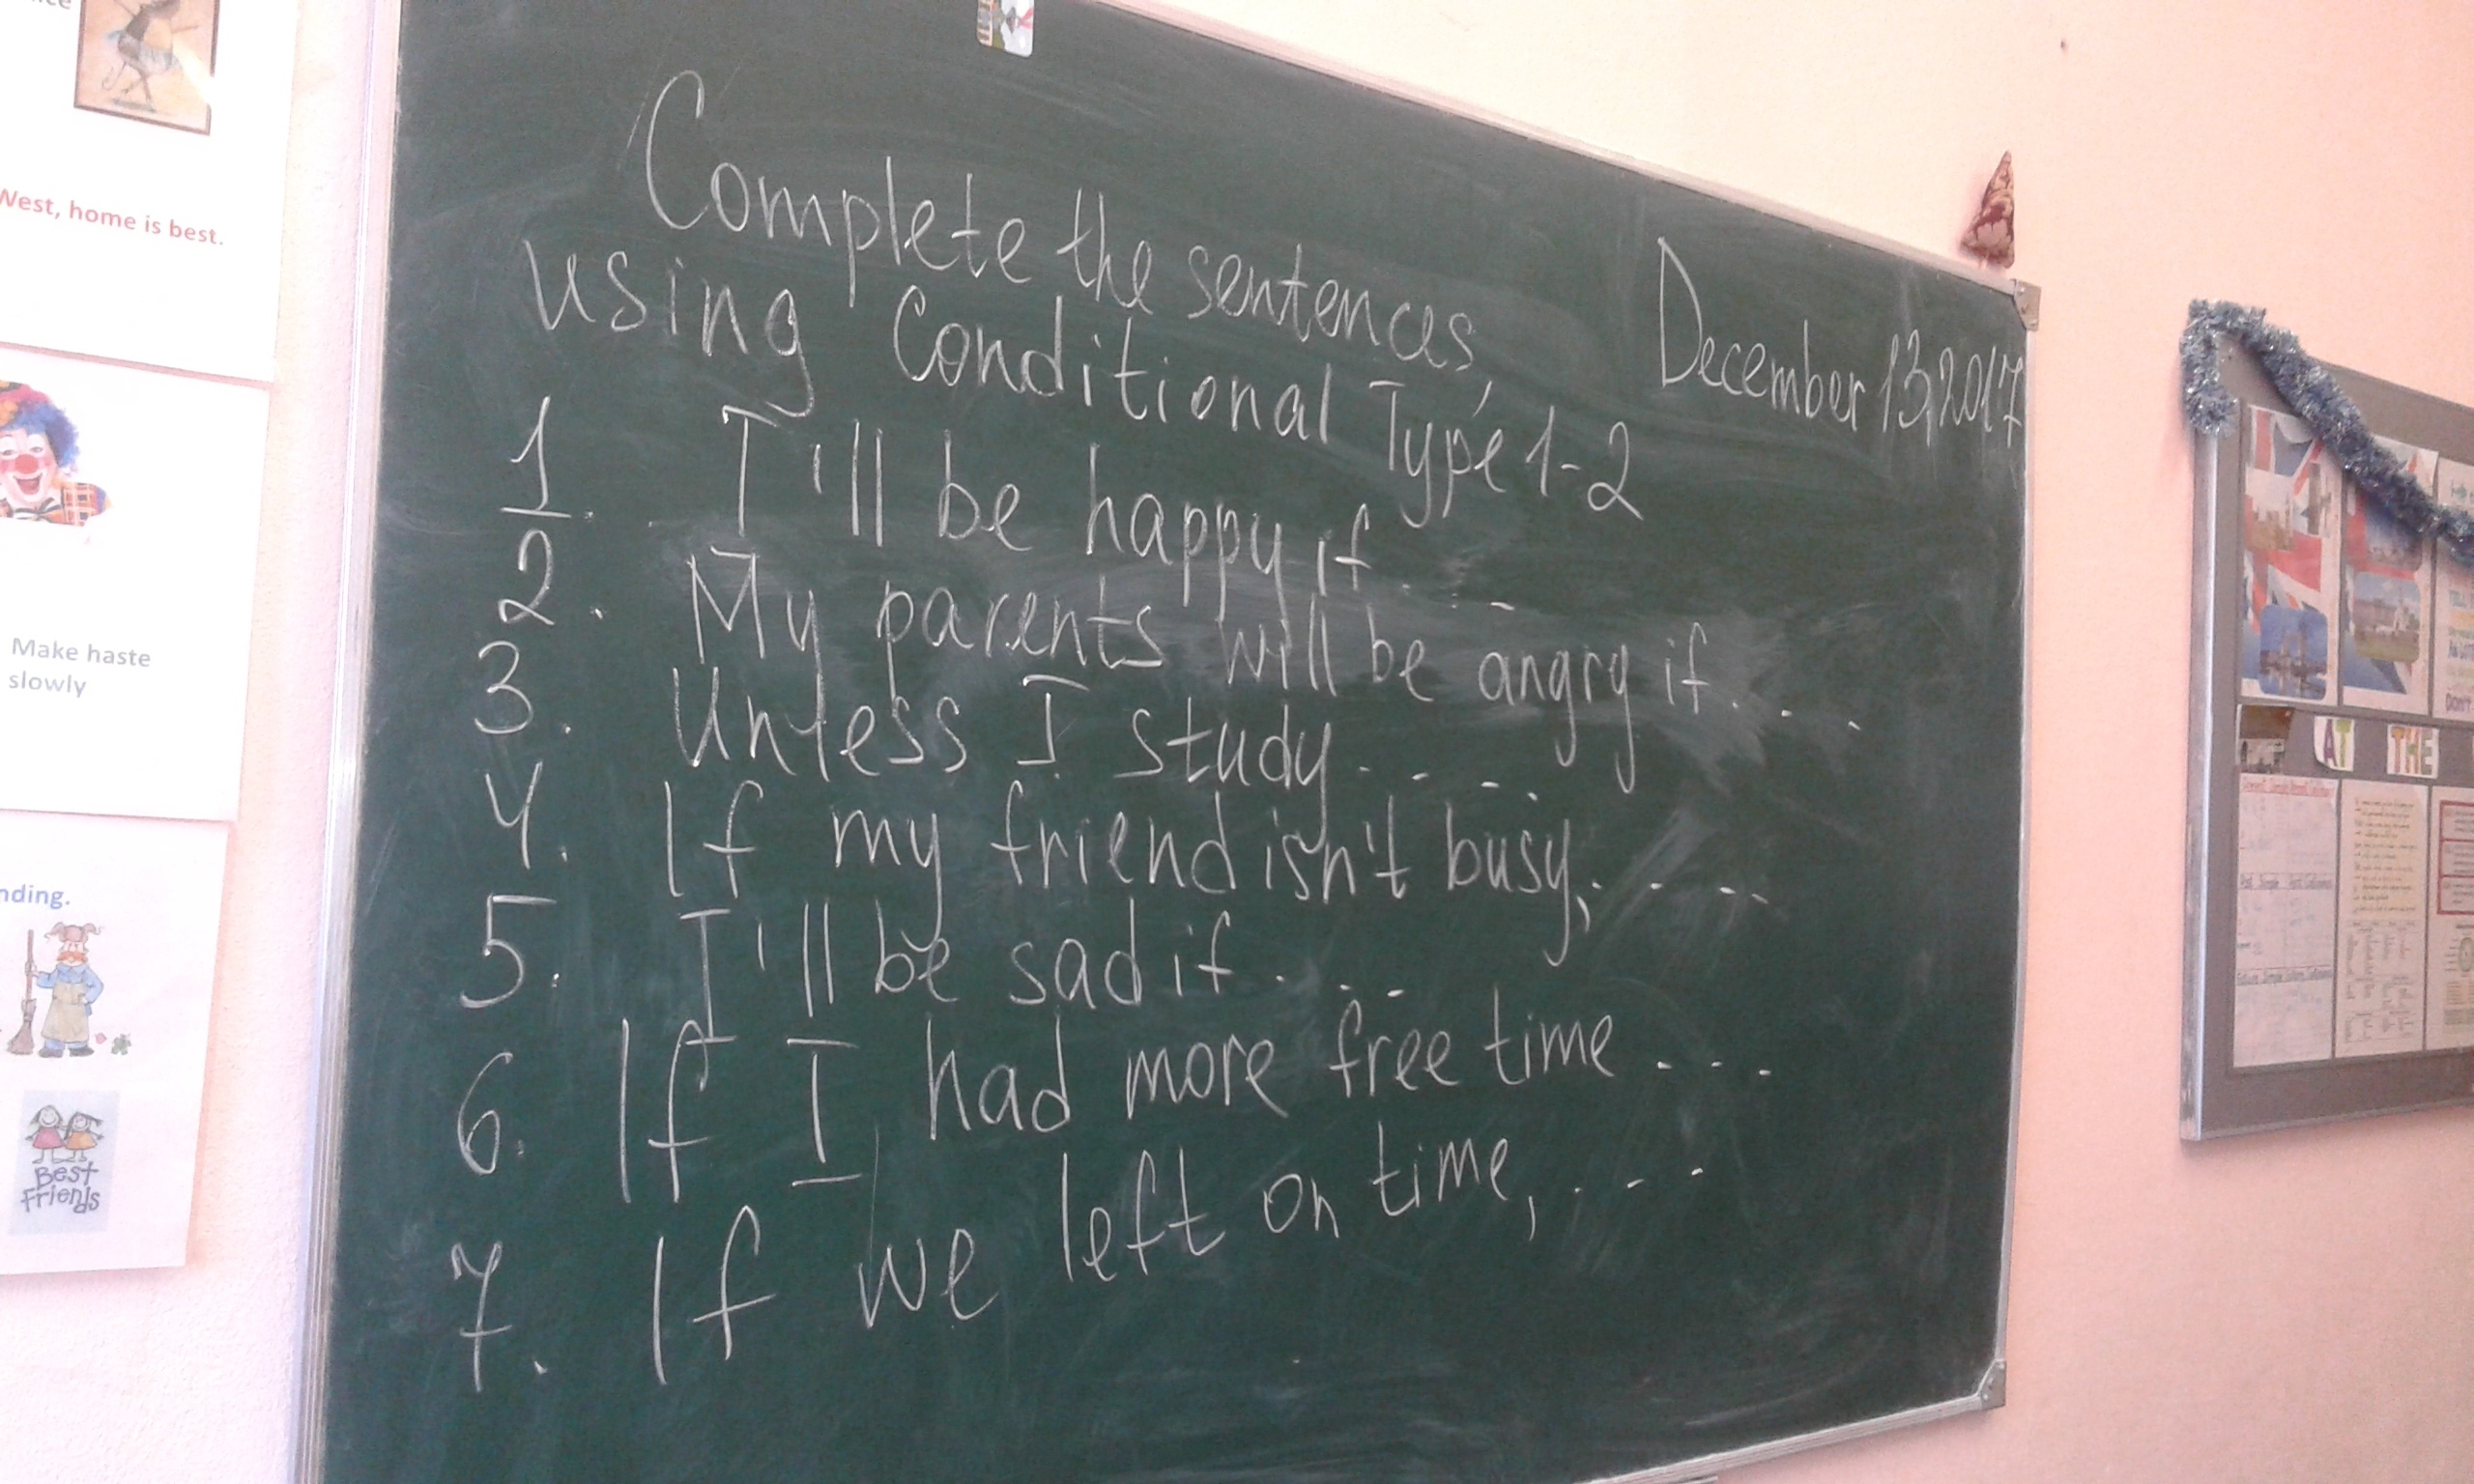 West, home is best.
Make haste
slowly
Best
Friends
Complete the sentences,
using Conditional Type 1-2
December 13, 2017
1. I'll be happy if....
2. My parents will be angry if....
3. Unless I study....
4. If my friend isn't busy, ....
5. I'll be sad if....
6. If I had more free time ...
7. If we left on time, ...
AT THE